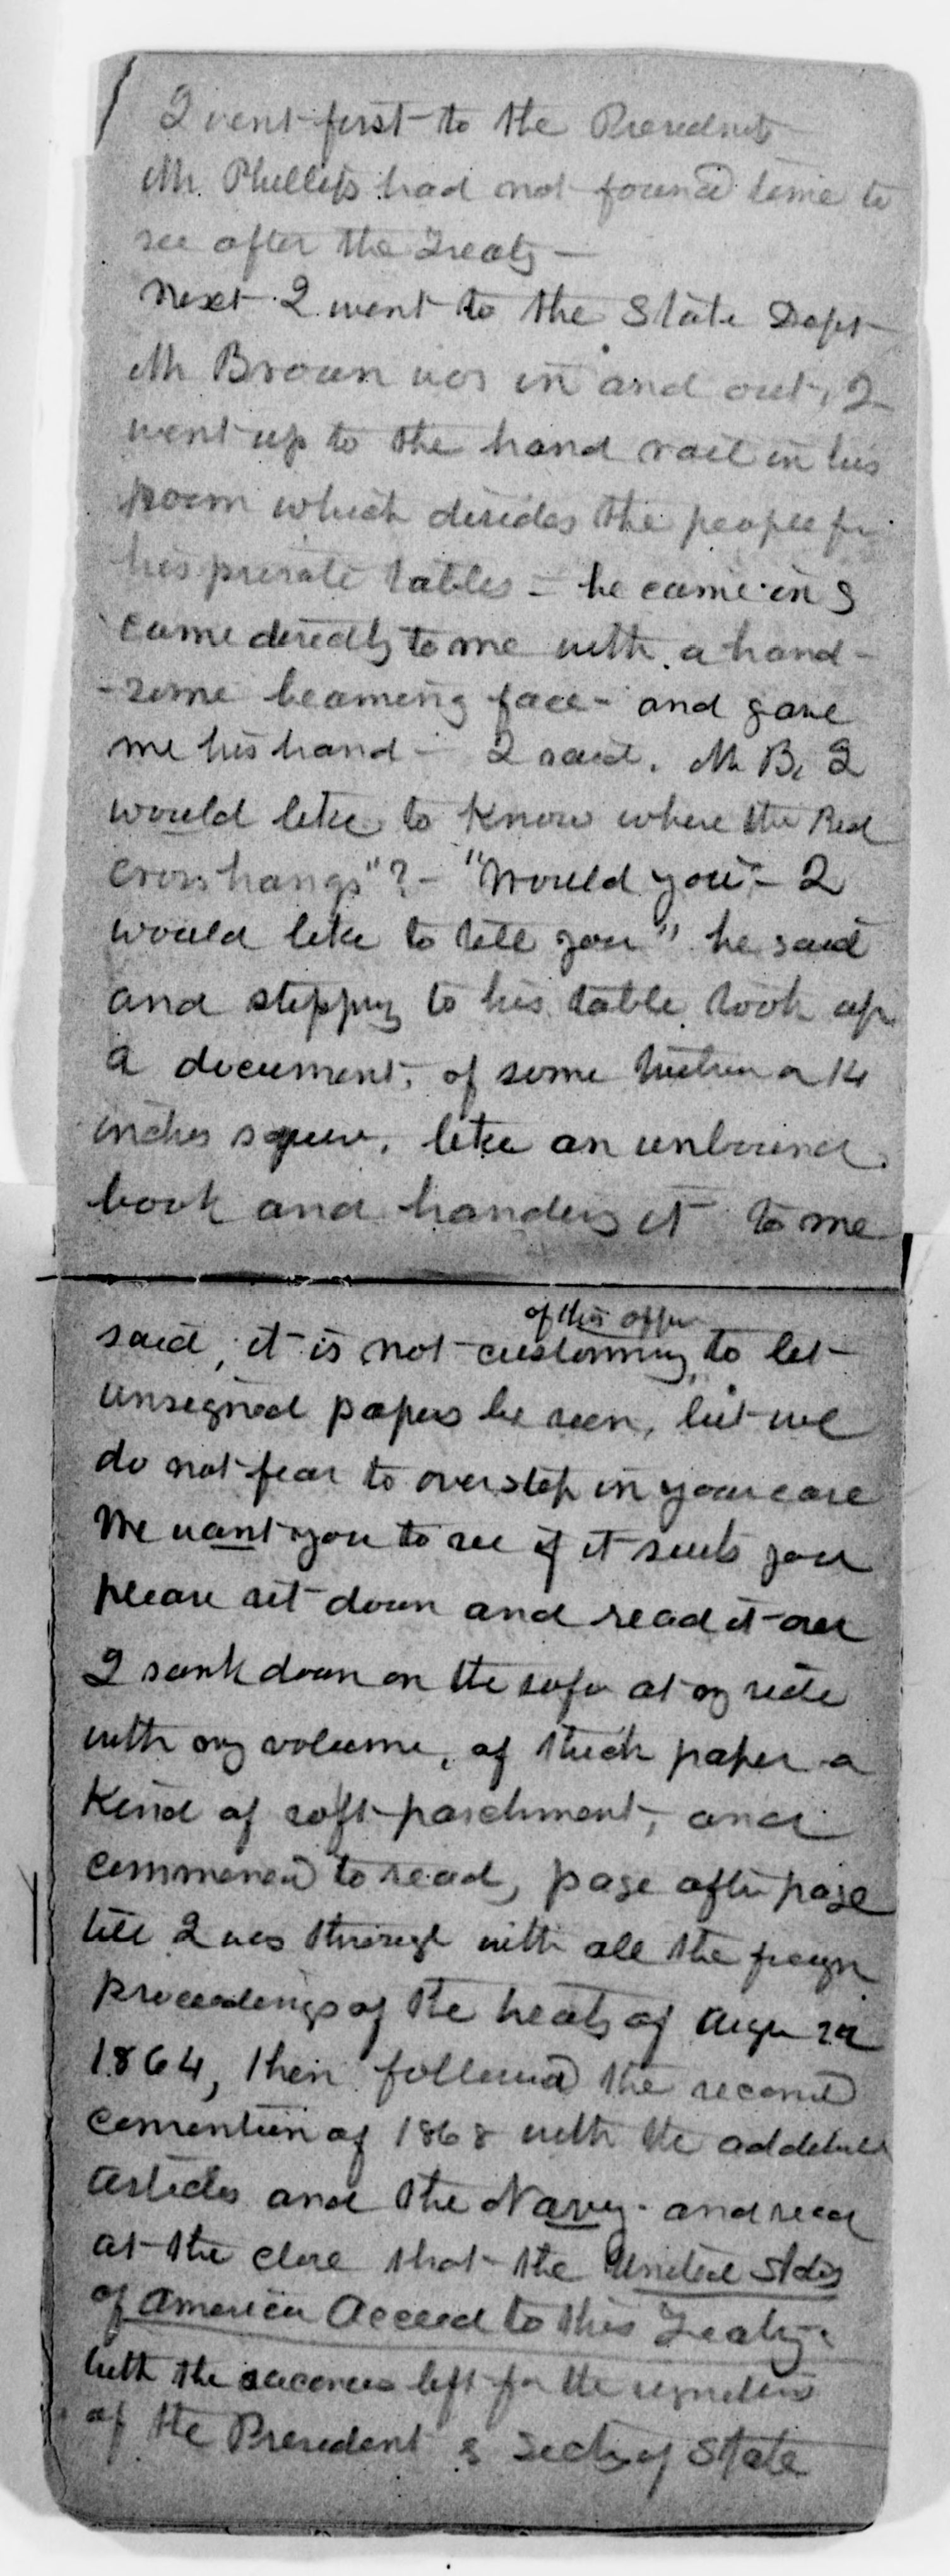 I went first to the Presidents
Mr. Phillips had not found time to
see after the Treaty —
Next I went to the State Dept
Mr Brown was in and out, I
went up to the hand rail in his
room which divides the people fr
his private tables — he came in &
came directly to me with a hand-
-some beaming face - and gave
me his hand — I said. Mr B, I
would like to know where the Red
Cross hangs"? — "Would you — I
would like to tell you" he said
and stepping to his table took up
a document, of some or 14
inches square, like an unbound
book and handing it to me
of this office
said, it is not customary to let
unsigned papers be seen, but we
do not fear to overstep in your case
We want you to see if it suits you
please sit down and read it over
I sank down on the sofa at my side
with my volume, of thick paper a
kind of soft parchment, and
commenced to read, page after page
till I was through with all the foreign
proceedings of the treaty of Augu 22
1864, then followed the second
convention of 1868 with the additional
articles and the Navy - and read
at the close that the United States
of America Acceed to this Treaty.
with the left for the signatures
of the President & Secty of State